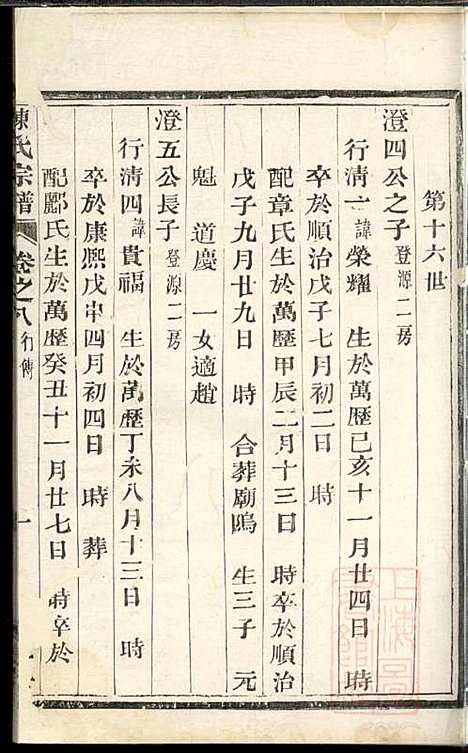 第十六世
澄四公之子登源二房
行淸一諱榮耀 生於萬歷己亥十一月廿四日 時
卒於順治戊子七月初二日 時
配章氏生於萬歷甲辰二月十三日 時卒於順治
戊子九月廿九日 時 合葬廟鳴 生三子 元
魁 道慶 一女適趙
澄五公長子登源二房
行淸四諱貴福 生於萬歷丁未八月十三日 時
卒於康熙戊申四月初四日 時 葬
配酈氏生於萬歷癸丑十一月廿七日 時卒於
陳氏宗譜 卷之八行傳 一